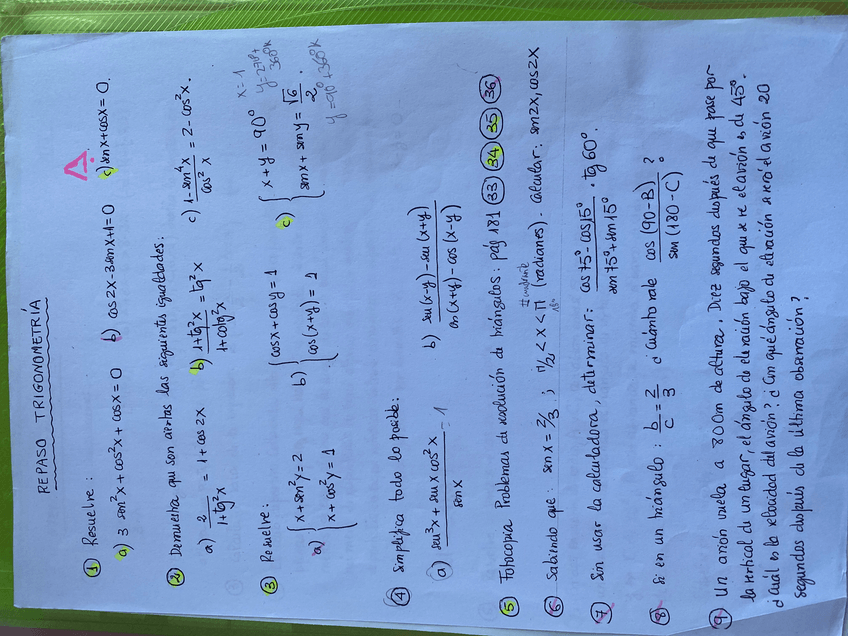 REPASO TRIGONOMETRÍA
① Resuelve:
a) 3 sen²x + cos²x + cosx = 0   b) cos2x-3senx+1=0   c) senx+cosx=0.
② Demuestra que son ciertas las siguientes igualdades:
a) 2/(1+tg²x) = 1+cos2x   b) (1+tg²x)/(1+cotg²x) = tg²x   c) (1-sen⁴x)/cos²x = 2-cos²x.
③ Resuelve:
a) { x+sen²y=2   b) { cosx+cosy=1   c) { x+y=90°   x=1
x+cos²y=1   cos(x+y)=1   senx+seny=√6/2.
y=270+360°k
y=90°+360°k
④ Simplifica todo lo posible:
a) (sen³x + senx cos²x)/senx = 1   b) (sen(x-y)-sen(x+y))/(cos(x+y)-cos(x-y))
⑤ Fotocopia Problemas de resolución de triángulos: pág 181 ㉝ ㉞ ㉟ ㊱
II cuadrante
⑥ Sabiendo que: senx=2/3 ; π/2 < x < π (radianes). Calcular: sen2x, cos2x
⑦ Sin usar la calculadora, determinar: (cos75°-cos15°)/(sen75°+sen15°) · tg60°.
⑧ Si en un triángulo: b/c = 2/3 ¿cuánto vale cos(90-B)/sen(180-C)?
⑨ Un avión vuela a 800m de altura. Diez segundos después de que pase por
la vertical de un lugar, el ángulo de elevación bajo el que se ve el avión es de 45°.
¿Cuál es la velocidad del avión? ¿Con qué ángulo de elevación se verá el avión 20
segundos después de la última observación?